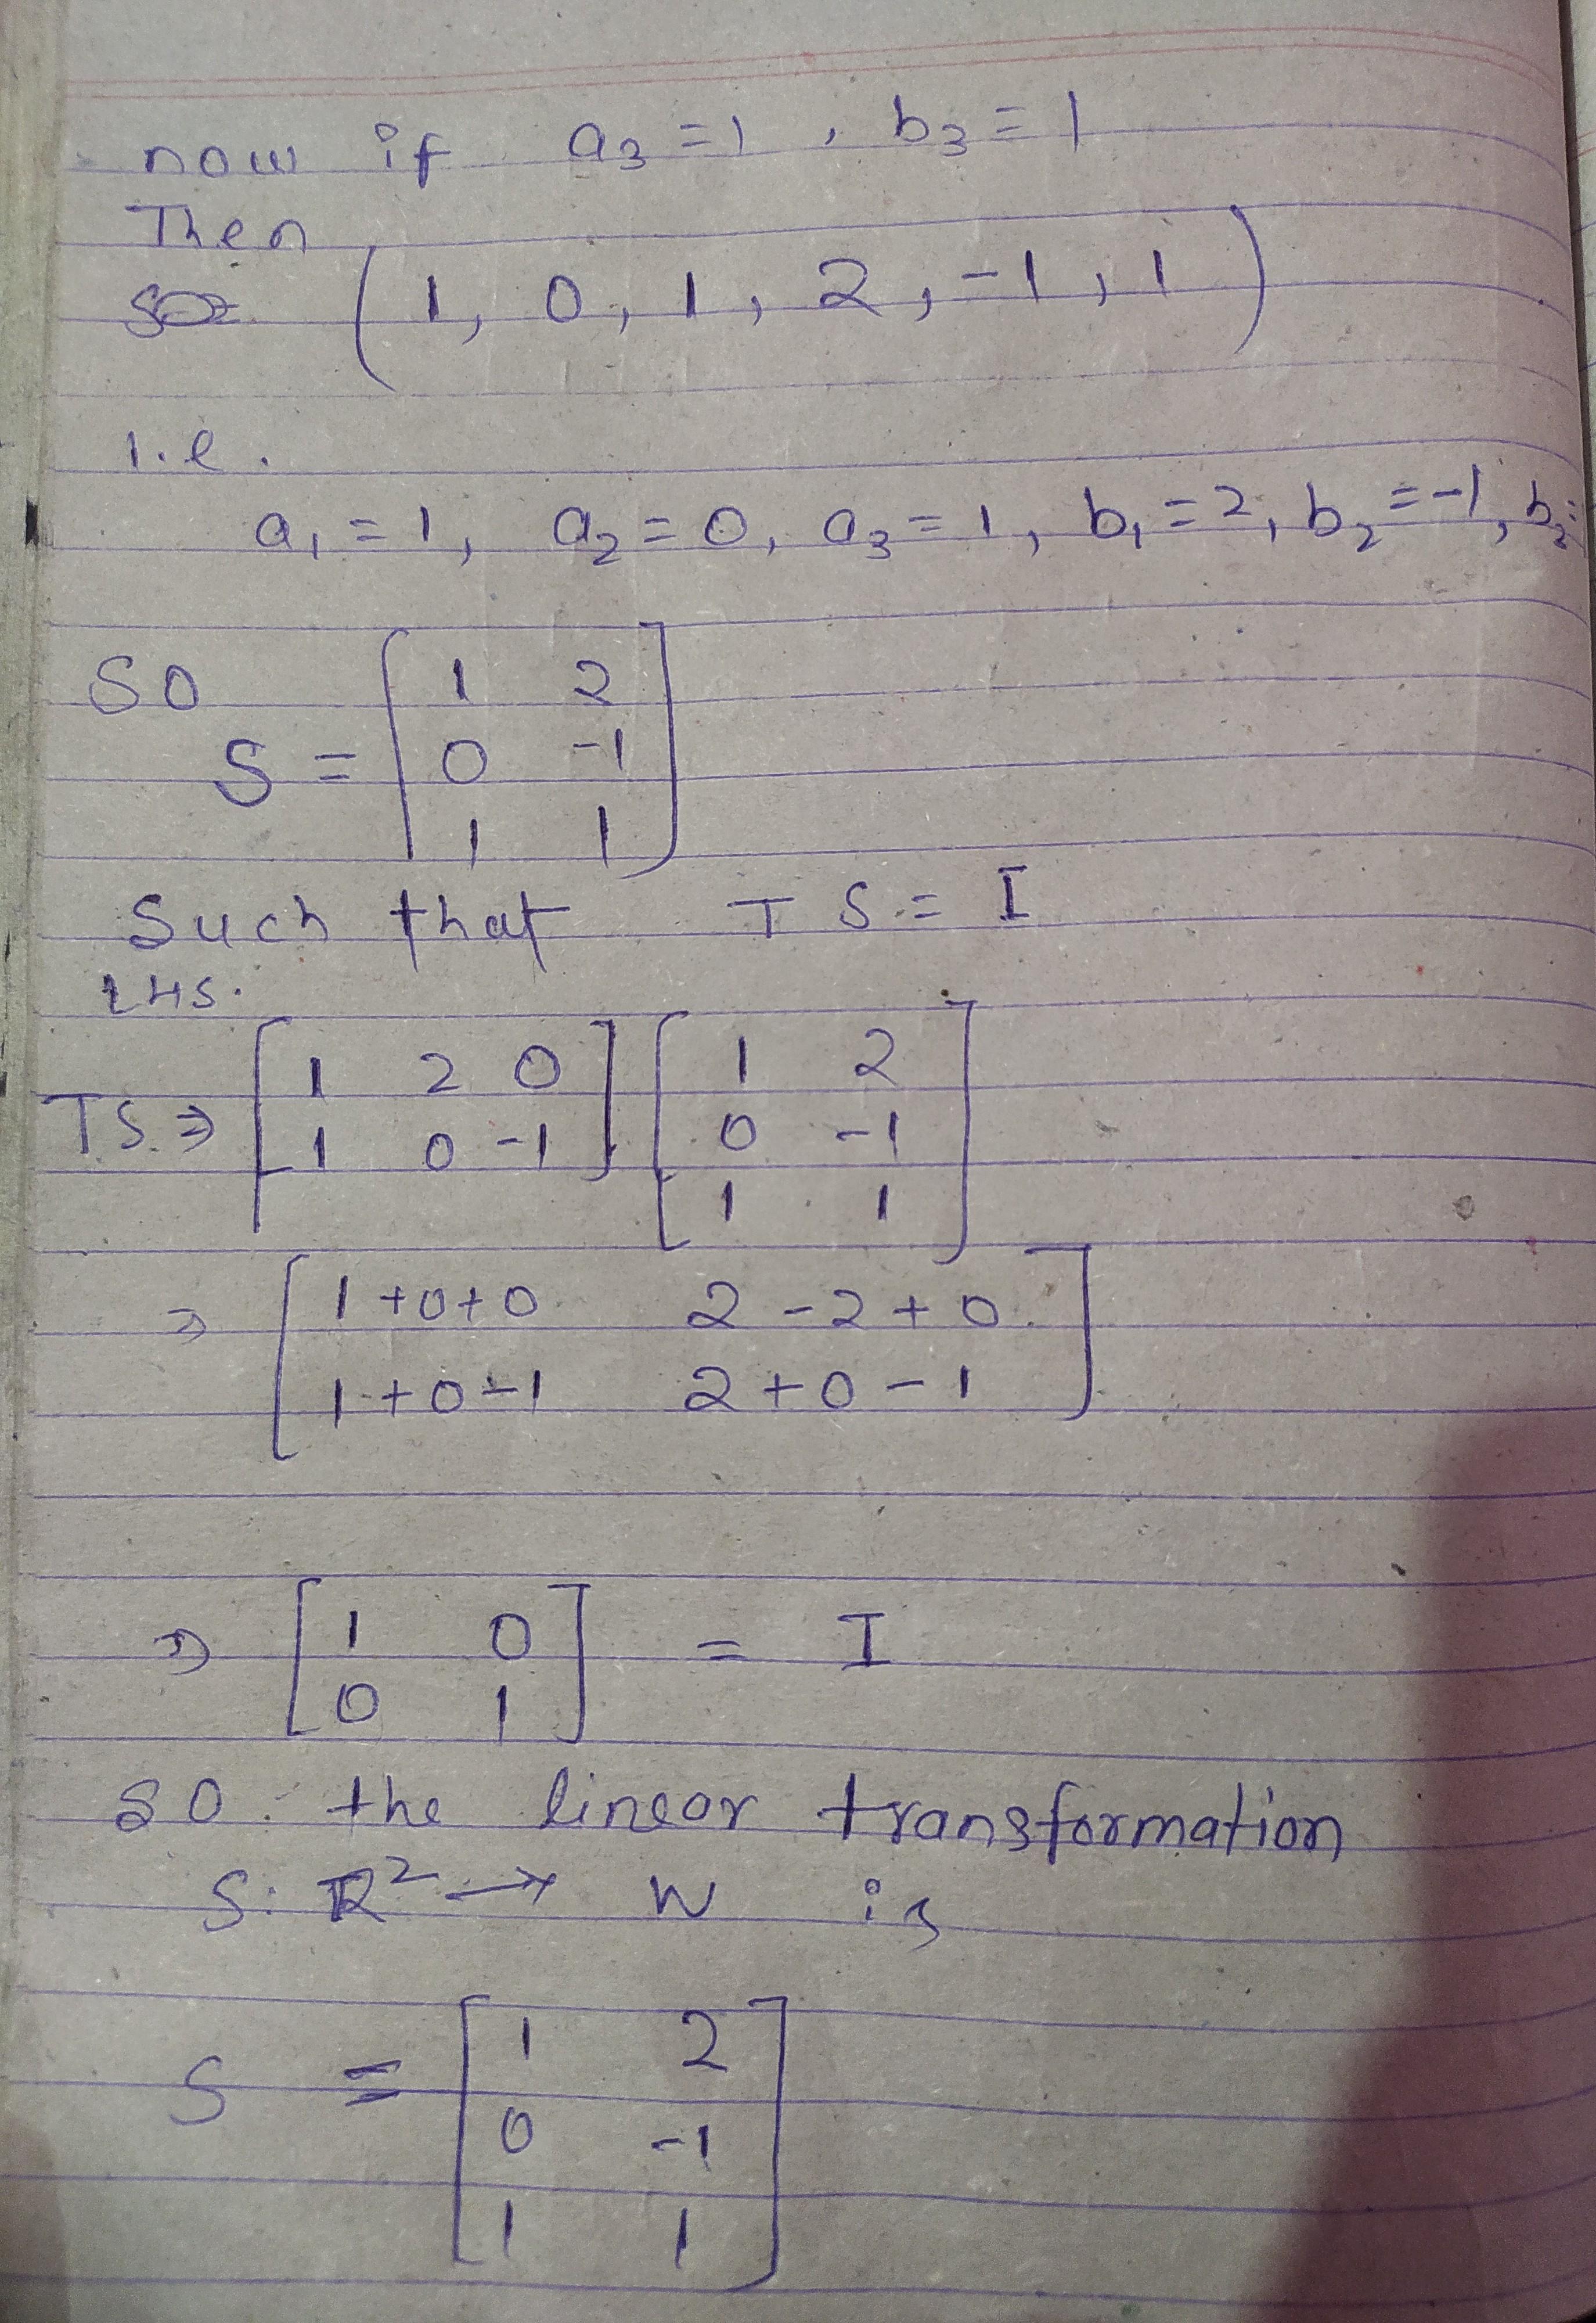 now if a₃ = 1 , b₃ = 1
Then
(1, 0, 1, 2, -1, 1)
i.e.
a₁ = 1, a₂ = 0, a₃ = 1, b₁ = 2, b₂ = -1, b₃ =
SO
S = [1 2
0 -1
1 1]
Such that TS = I
LHS.
TS ⇒ [1 2 0
1 0 -1] [1 2
0 -1
1 1]
⇒ [1+0+0 2-2+0
1+0-1 2+0-1]
⇒ [1 0
0 1] = I
SO the linear transformation
S: R² → W is
S = [1 2
0 -1
1 1]